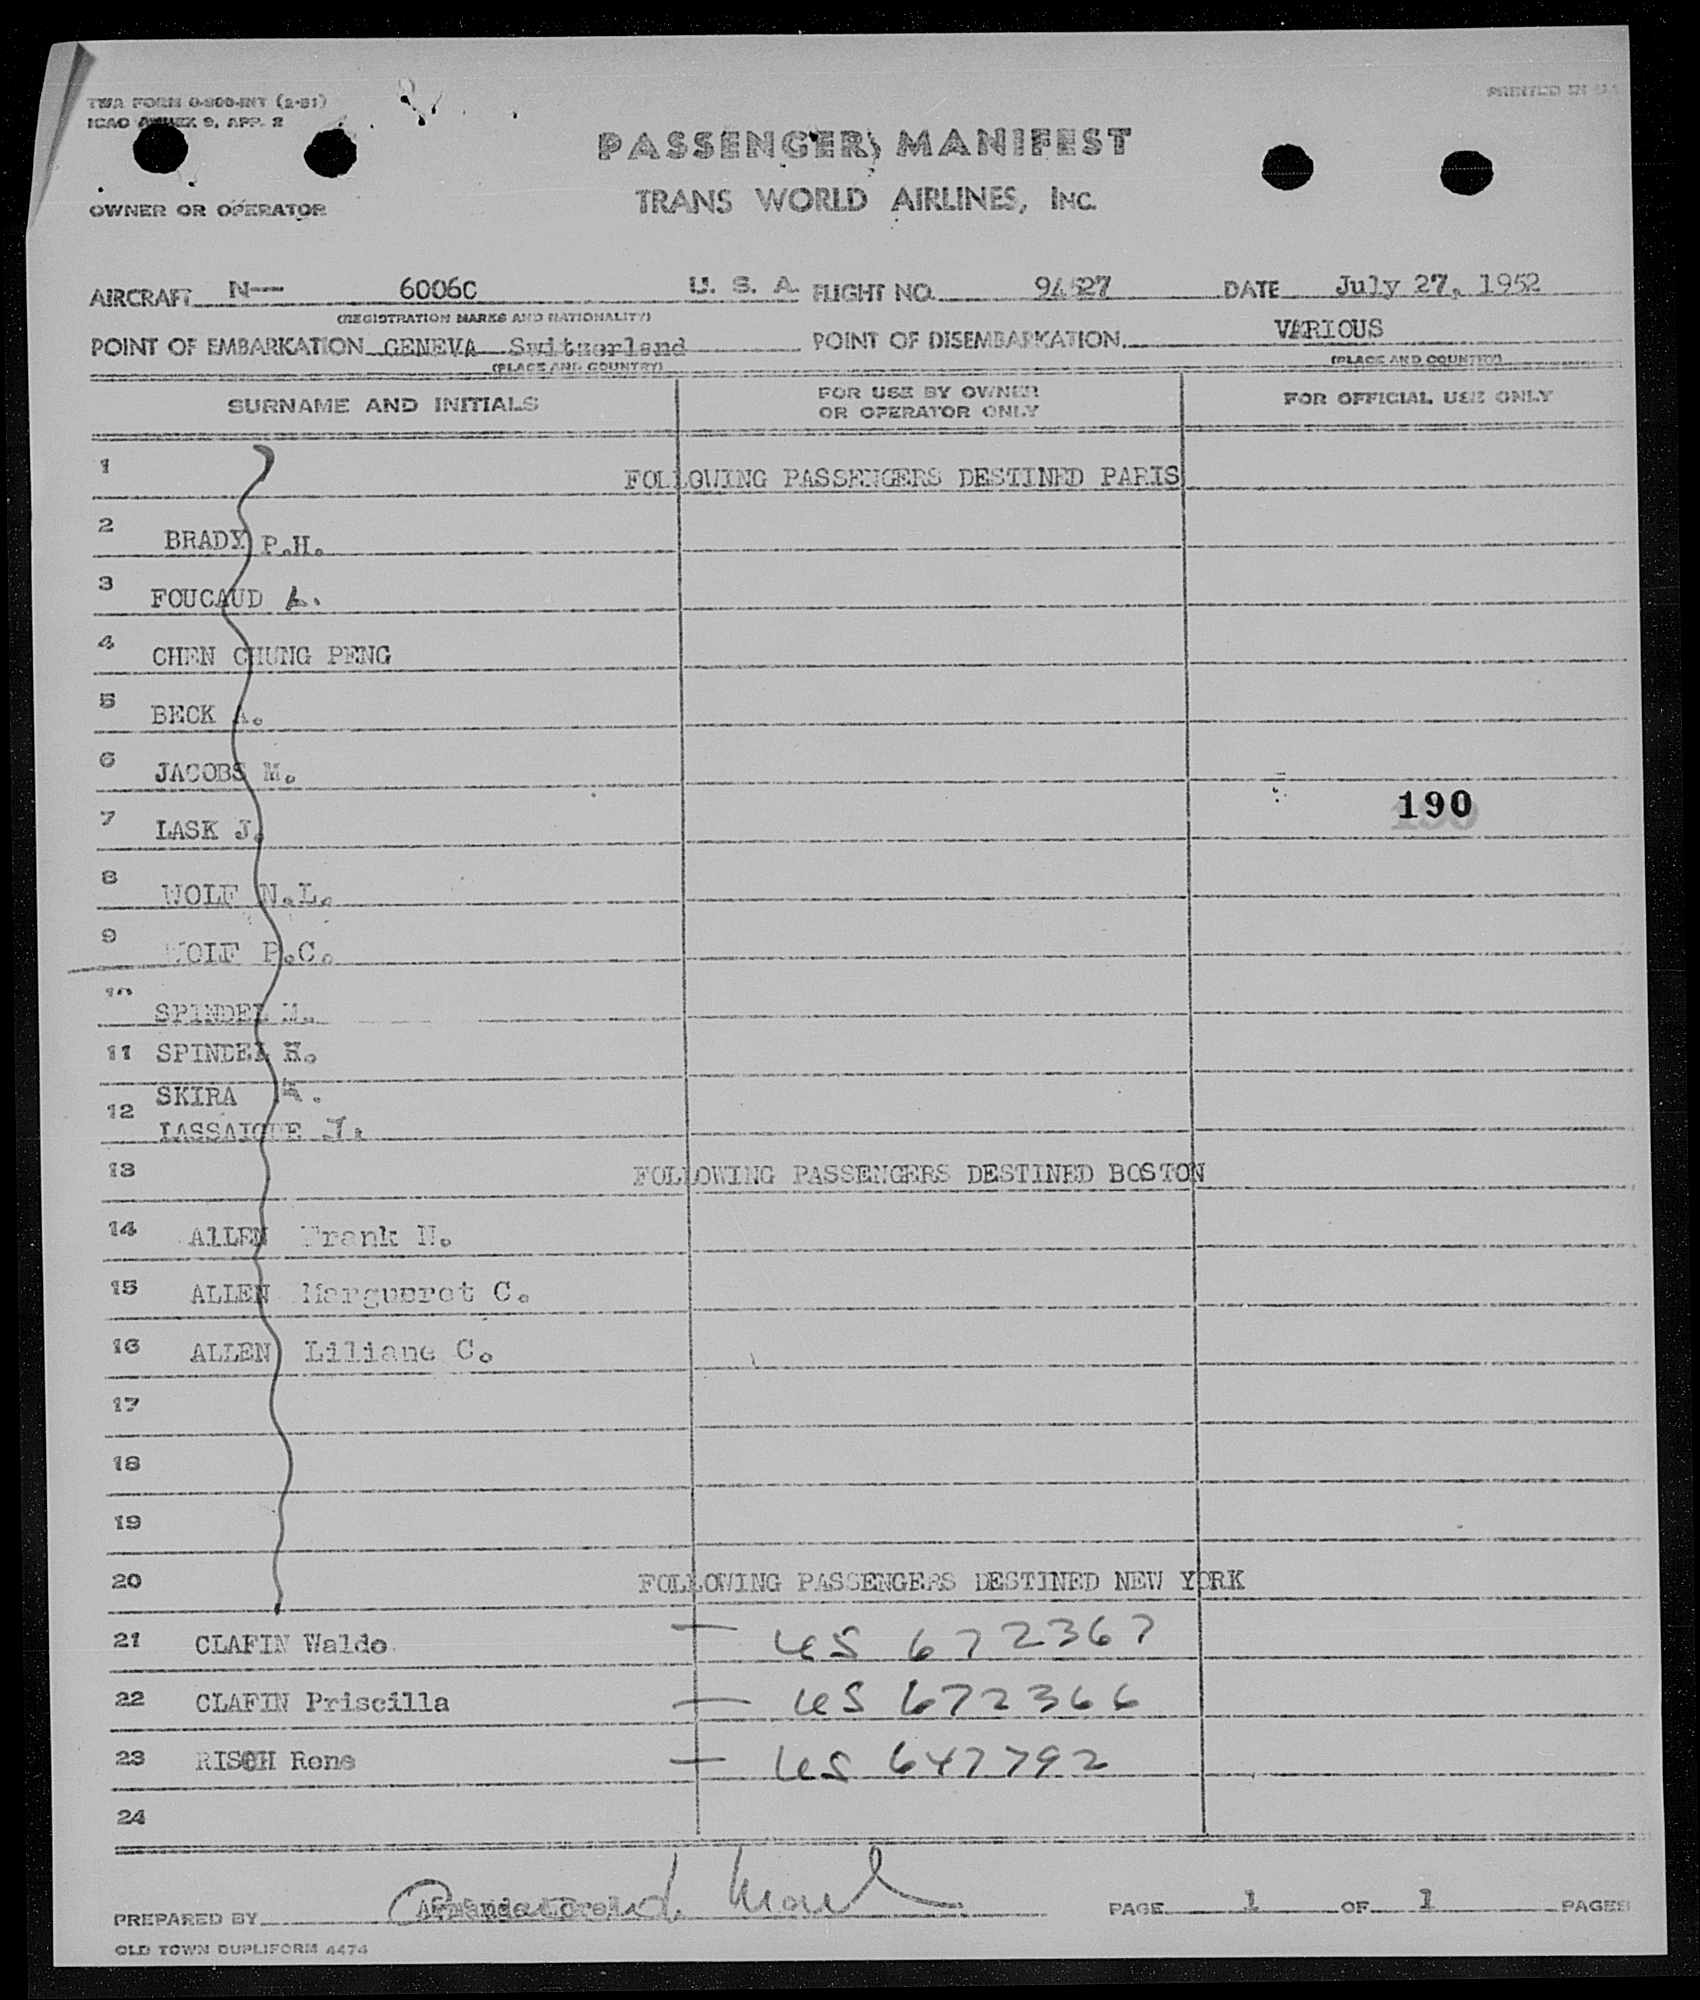 TWA FORM 0-800-INT (2-51)
ICAO ANNEX 9, APP. 2
PRINTED IN U.S.
PASSENGER MANIFEST
OWNER OR OPERATOR
TRANS WORLD AIRLINES, INC.
AIRCRAFT N-- 6006C U. S. A. FLIGHT NO. 94527 DATE July 27, 1952
(REGISTRATION MARKS AND NATIONALITY)
POINT OF EMBARKATION GENEVA Switzerland POINT OF DISEMBARKATION VARIOUS
(PLACE AND COUNTRY) (PLACE AND COUNTRY)
SURNAME AND INITIALS FOR USE BY OWNER OR OPERATOR ONLY FOR OFFICIAL USE ONLY
1 FOLLOWING PASSENGERS DESTINED PARIS
2 BRADY P.H.
3 FOUCAUD L.
4 CHEN CHUNG PENG
5 BECK A.
6 JACOBS M.
7 LASK J. 190
8 WOLF N.L.
9 WOLF P.C.
10 SPINDEL M.
11 SPINDEL H.
SKIRA
12 LASSAIGUE J.
13 FOLLOWING PASSENGERS DESTINED BOSTON
14 ALLEN Frank N.
15 ALLEN Margueret C.
16 ALLEN Liliane C.
17
18
19
20 FOLLOWING PASSENGERS DESTINED NEW YORK
21 CLAFIN Waldo — US 672367
22 CLAFIN Priscilla — US 672366
23 RISCH Rene — US 647792
24
PREPARED BY PAGE 1 OF 1 PAGES
OLD TOWN DUPLIFORM 4474